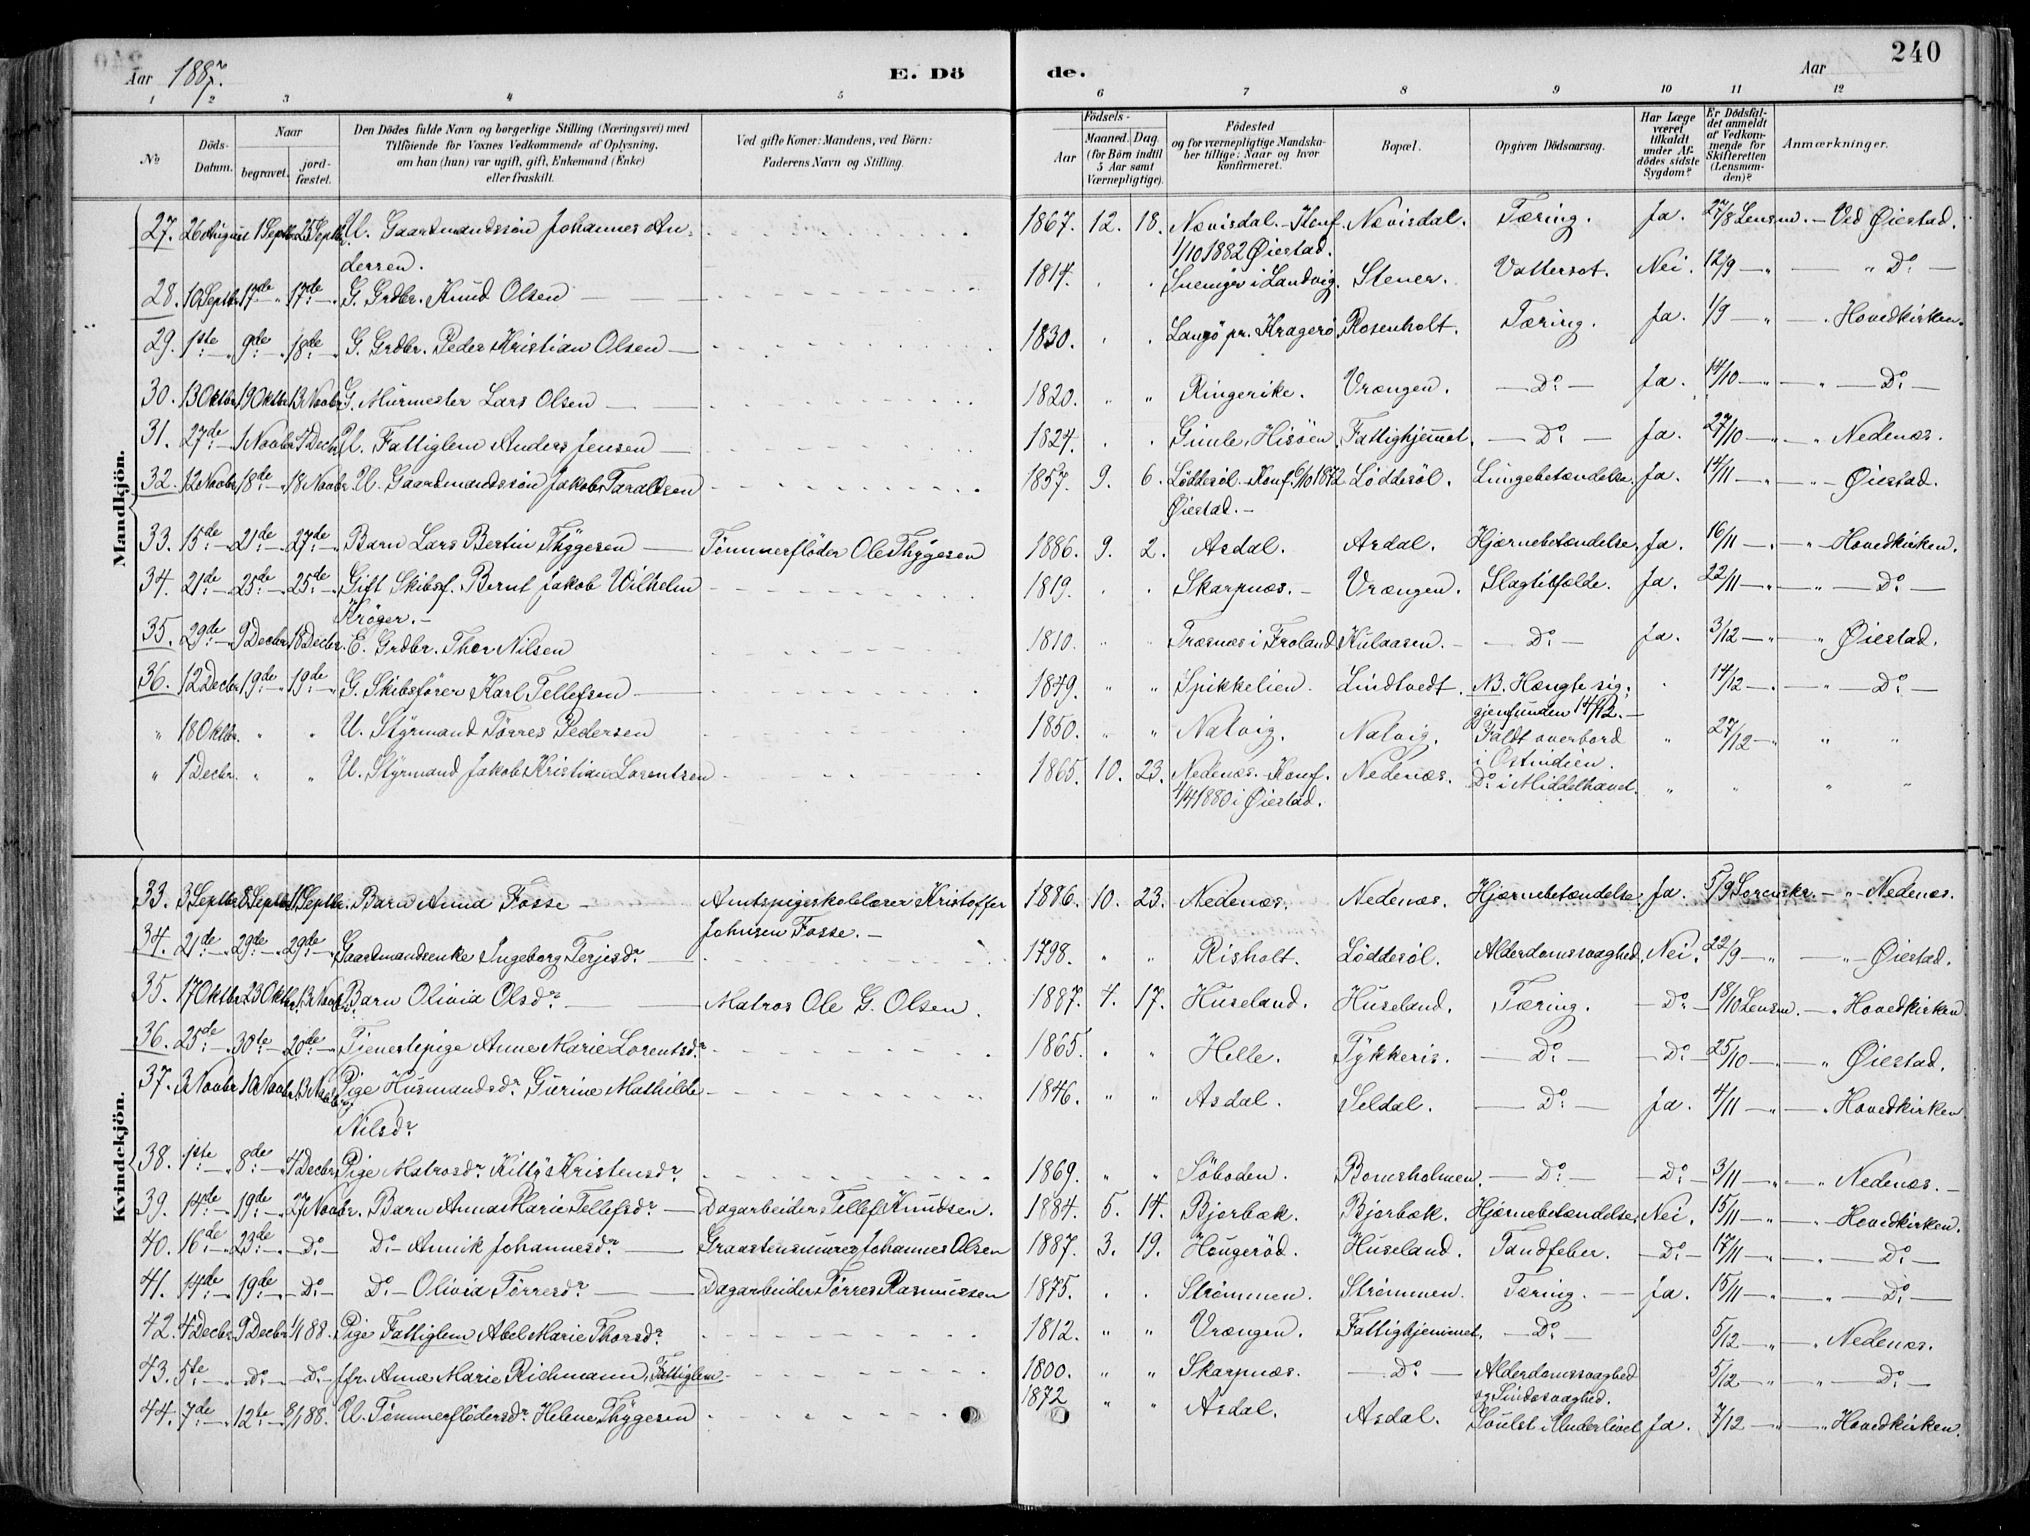 Aar 1887. E. Dö de. Aar 240
1 2 3 4 5 6 7 8 9 10 11 12
No
Döds-Datum.
Naar
begravet.
jord-fæstet.
Den Dödes fulde Navn og borgerlige Stilling (Næringsvei) med
Tilföiende for Voxnes Vedkommende af Oplysning,
om han (hun) var ugift, gift, Enkemand (Enke)
eller fraskilt.
Ved gifte Koner: Mandens, ved Börn:
Faderens Navn og Stilling.
Födsels-
Aar
Maaned. Dag.
(for Börn indtil
5 Aar samt
Værnepligtige).
Födested
og for værnepligtige Mandska-
ber tillige: Naar og hvor
konfirmeret.
Bopæl.
Opgiven Dödsaarsag.
Har Læge
været
tilkaldt
under Af-
dödes sidste
Sygdom?
Er Dödsfal-
det anmeldt
af Vedkom-
mende for
Skifteretten
(Lensman-
den)?
Anmærkninger.
Mandkjön.
27. 26 August 1 Septbr 25 Septbr. U. Gaardmandssön Johannes An- 1867. 12. 18. Nævisdal. - Konf. Nævisdal. Tæring. Ja. 27/8 Lensm. - Ved Øiestad.
dersen. 1/10 1882 Øiestad.
28. 10 Septbr 17de 17de G. Grdbr. Knud Olsen 1814. Landvig. Stener. Vattersot. Nei. 12/9 " Do
29. 1ste 9de 18de G. Grdbr. Peder Kristian Olsen 1830. Langö pr. Kragerö. Rosenholt. Tæring. Ja. 1/9 Hovedkirken.
30. 13 Oktbr 19 Oktbr 13 Novbr G. Murmester Lars Olsen 1820. " Ringerike. Vrængen. Do Ja. 14/10 Do
31. 27de 1 Novbr 4 Decbr U. Fattiglem Anders Jensen 1824. Gimle, Hisöen. Fattighjemmet. Do Ja. 27/10 Nedenæs.
32. 12 Novbr 18de 18 Novbr. U. Gaardmandssön Jakob Taraldsen 1857. 9. 6. Löddesöl. - Konf. 6/10 1872 Löddesöl. Lungebetændelse. Ja. 14/11 Øiestad.
Øiestad. -
33. 15de 21de 27de Barn Lars Bertin Thygesen Tömmerflöder Ole Thygesen 1886. 9. 2. Asdal. Asdal. Hjernebetændelse. Ja. 16/11 Hovedkirken.
34. 21de 25de 25de Gift Skibsf. Bernt Jakob Wilhelm 1819. Skarpnæs. - Vrængen. Slagtilfælde. Ja. 22/11 Do
Kröger. -
35. 29de 9 Decbr 18 Decbr. E. Grdbr. Thor Nilsen 1810. " Træsnæs i Froland. Kulaasen. - Do Ja. 3/12 Øiestad.
36. 12 Decbr 19de 19de G. Skibsförer Karl Tellefsen 1849. " Spikkelien. Lindtvedt. NB. Hængte sig; 14/12 Do
gjenfunden 14/12. -
" 18 Oktbr. " " U. Styrmand Törres Pedersen 1850. " " Natvig. Natvig. Faldt overbord " 27/12 " "
i Ostindien.
" 1 Decbr. " " U. Styrmand Jakob Kristian Lorentsen 1865. 10. 23. Nedenæs. - Konf. Nedenæs. Do i Middelhavet. " " " "
4/4 1880 i Øiestad.
Kvindekjön.
33. 3 Septbr 8 Septbr 11 Septbr. Barn Anna Fosse - Amtspigeskolelærer Kristoffer 1886. 10. 23. Nedenæs. Nedenæs. Hjernebetændelse. Ja. 5/9 Sorenskr. - " - Nedenæs.
Johnsen Fosse. -
34. 21de 29de 29de Gaardmandsenke Ingeborg Terjesdr 1798. " " Risholt. Löddesöl. Alderdomssvaghed. Nei. 22/9 Øiestad.
35. 17 Oktbr 23 Oktbr. 13 Novbr. Barn Olivia Olsdr Matros Ole G. Olsen. 1887. 4. 17. Huseland. Huseland. Tæring. Do 18/10 Lensm. Hovedkirken.
36. 25de 30te 20de Tjenestepige Anne Marie Lorentsdr. 1865. " " Helle. Tykkeris. Do Do 25/10 Øiestad.
37. 3 Novbr 10 Novbr. 13 Novbr. Pige Husmandsdr Gurine Mathilde 1846. " " Asdal. Seldal. Do Ja. 4/11 Hovedkirken.
Nilsdr
38. 1ste 8de 4 Decbr Pige Matrosdr Kitty Kristensdr 1869. " Söboden. Bomsholmen. Do Do 3/11 Nedenæs. -
39. 14de 19de 27 Novbr. Barn Anna Marie Tellefsdr Dagarbeider Tellef Knudsen. 1884. 5. 14. Bjorbæk. Bjorbæk. Hjernebetændelse. Nei. 15/11 Hovedkirken.
40. 16de 23de Do Do Annik Johannesdr Graastensmurer Johannes Olsen 1887. 3. 19. Hougeröd. Huseland. Tandfeber. Do 17/11 Do
41. 14de 19de Do Do Olivia Törresdr Dagarbeider Törres Rasmussen 1875. Strömmen. Strömmen. Tæring. Ja. 15/11 Do
42. 4 Decbr 9 Decbr 1/1 88. Pige Fattiglem Abel Marie Thorsdr 1812. " " Vrængen. Fattighjemmet. Do 5/12 Nedenæs.
43. 5te Do Do ffr. Anne Marie Richmann, Fattiglem 1800. " " Skarpnæs. Do Alderdomssvaghed 5/12 Do
og Sindssvaghed.
44. 7de 12te 8/1 88. U. Tömmerflödersdr Helene Thygesen 1872 " " Asdal. Asdal. Svulst i Underlivet Ja. 7/12 Hovedkirken.